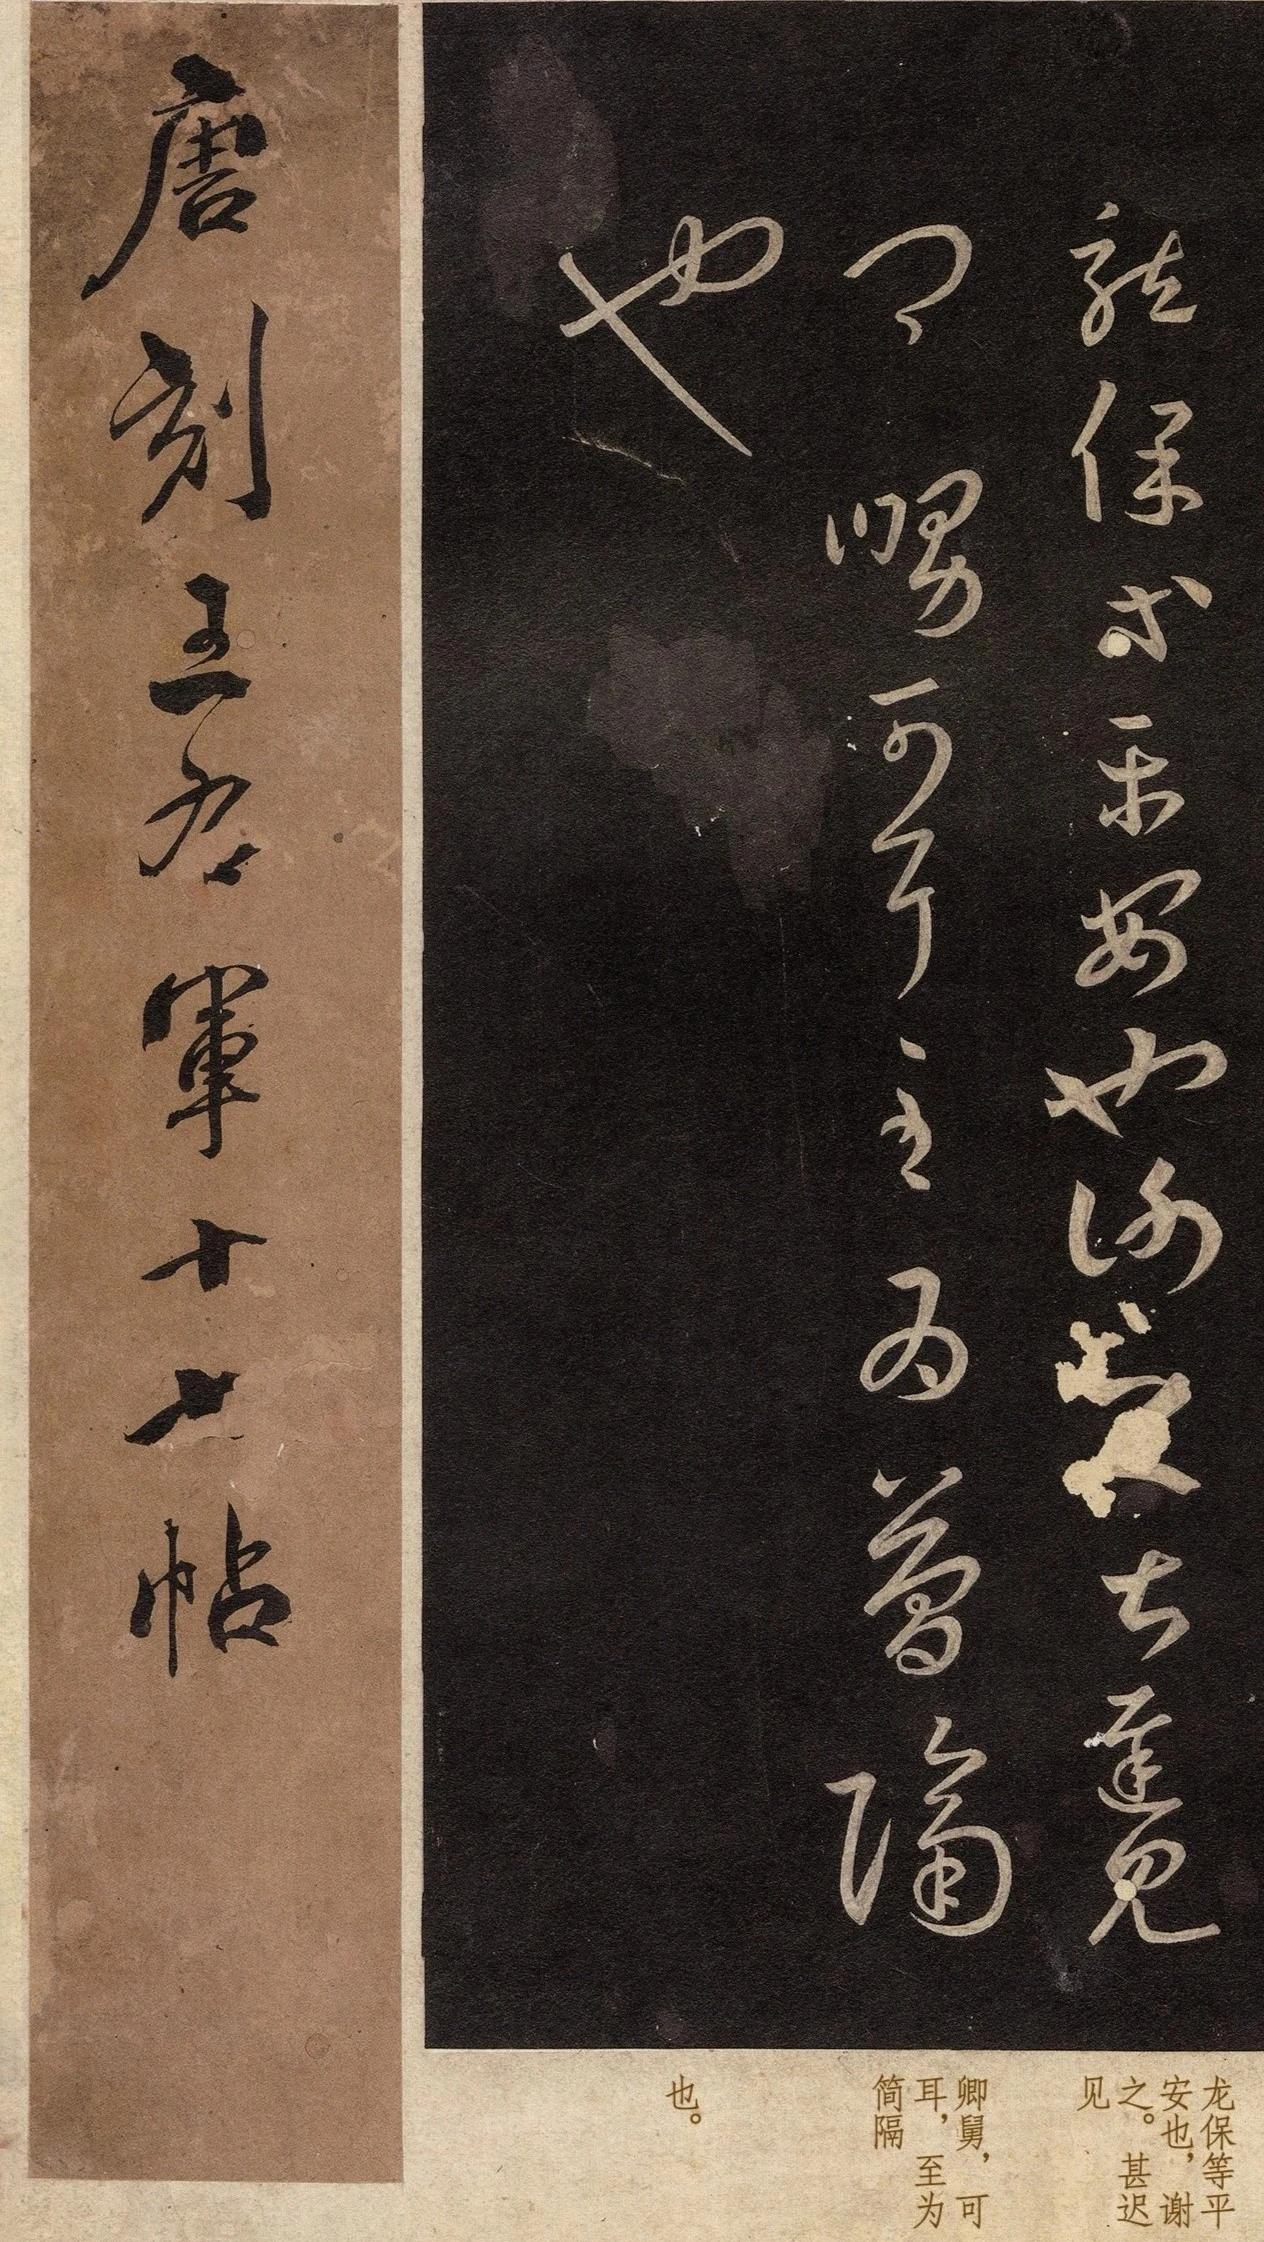 龍保等平安也謝之甚遲見
卿舅可耳至為簡隔
也
唐刻王右軍十七帖
龙保等平
安也，谢
之。甚迟
见
卿舅，可
耳，至为
简隔
也。